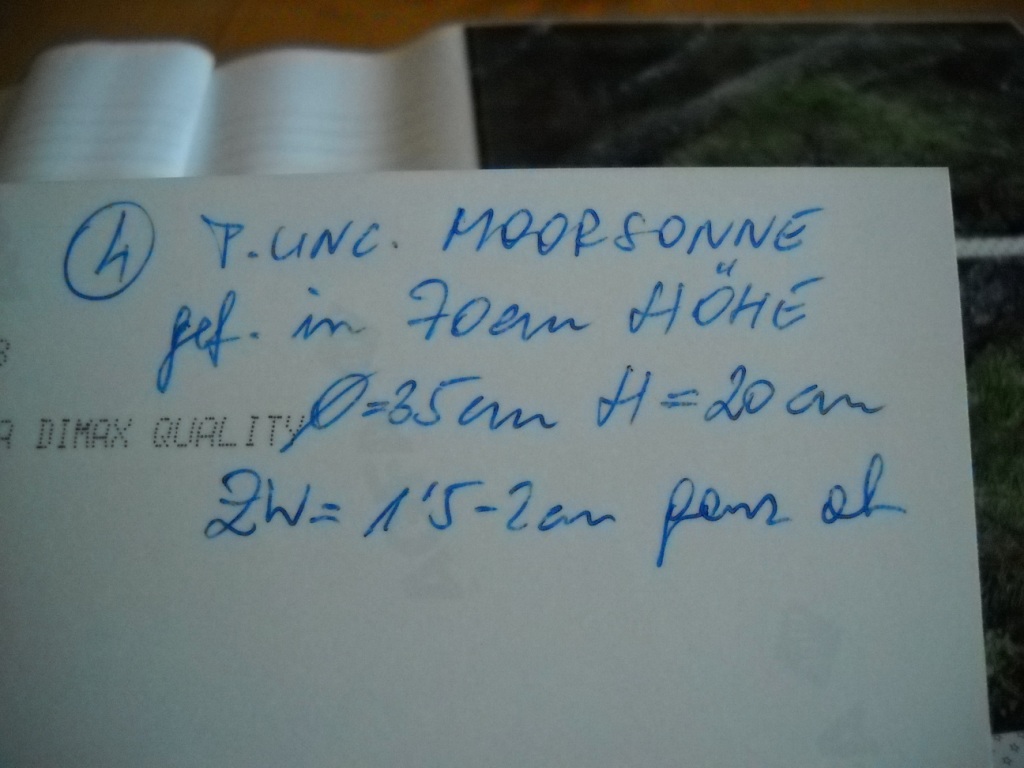 ④ P. UNC. MOORSONNE
gef. in 70cm HÖHE
Ø=35cm H=20cm
A DIMAX QUALITY
ZW= 1'5-2cm ganz